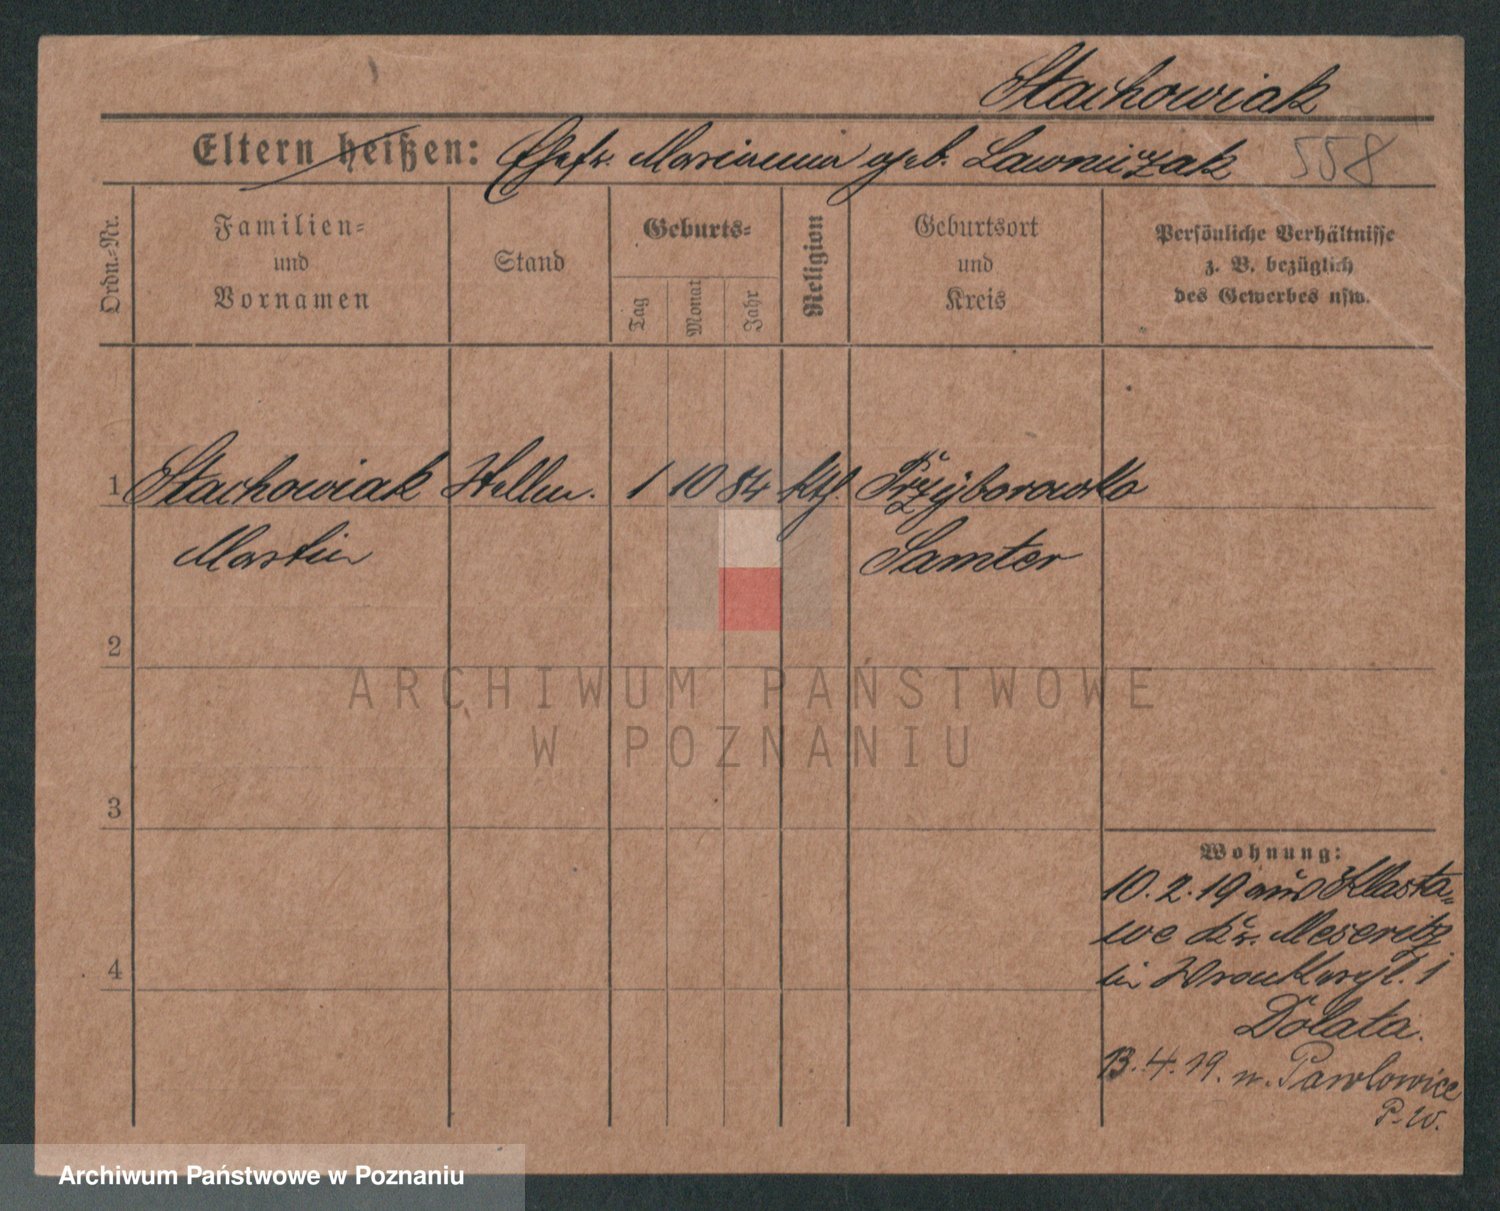 Stachowiak
Eltern heißen: Ehefr. Marianna geb. Lawniczak 558
Ordn.-Nr.
Familien- und Vornamen
Stand
Geburts-
Tag Monat Jahr
Religion
Geburtsort und Kreis
Persönliche Verhältnisse
z. B. bezüglich
des Gewerbes usw.
1 Stachowiak Stellm. 1 10 84 kth. Przyborowko
Martin Samter
2
3
4
Wohnung:
10.2.19 aus Klasta-
we Kr. Meseritz
in Wronk
Dolata.
13.4.19. n. Pawlowice
P.-W.
ARCHIWUM PAŃSTWOWE
W POZNANIU
Archiwum Państwowe w Poznaniu